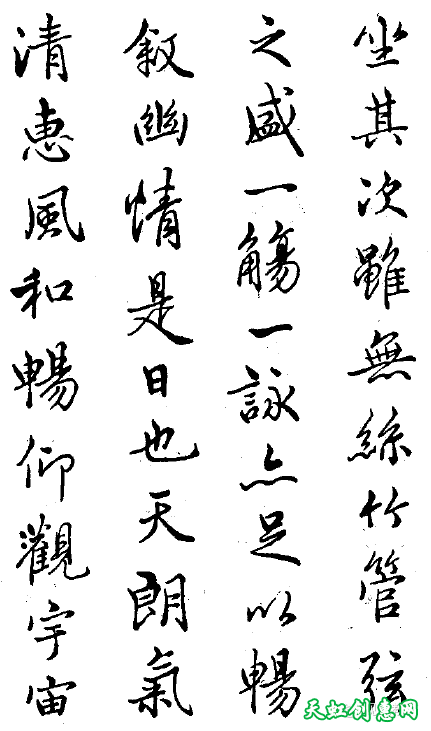 坐其次雖無絲竹管弦
之盛一觴一詠亦足以暢
敘幽情是日也天朗氣
清惠風和暢仰觀宇宙
天虹创惠网